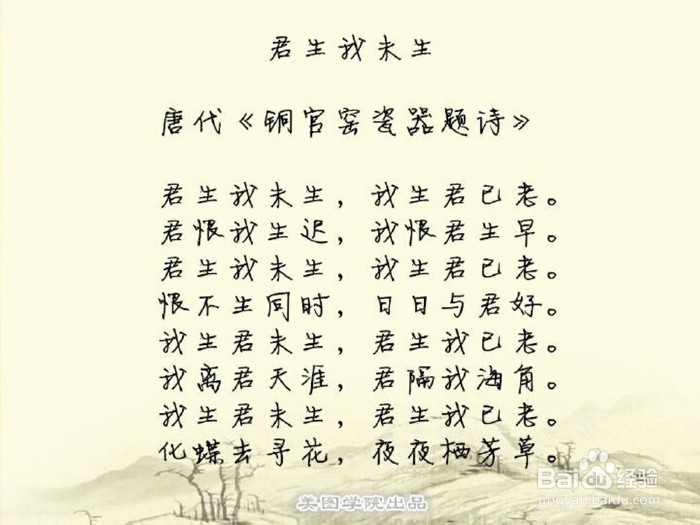 君生我未生
唐代《铜官窑瓷器题诗》
君生我未生，我生君已老。
君恨我生迟，我恨君生早。
君生我未生，我生君已老。
恨不生同时，日日与君好。
我生君未生，君生我已老。
我离君天涯，君隔我海角。
我生君未生，君生我已老。
化蝶去寻花，夜夜栖芳草。
Baidu经验
jingyan.baidu.com
美图学院出品